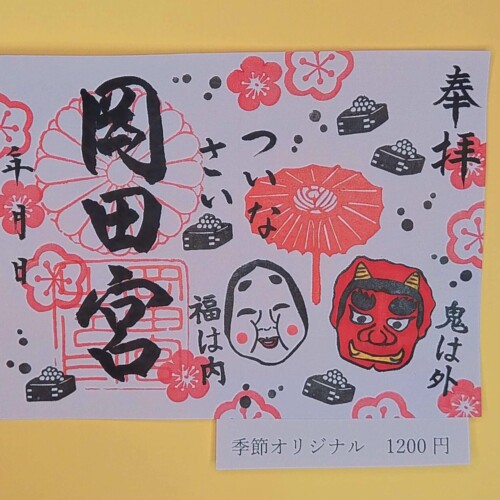 奉拝
鬼は外
ついな
さい
福は内
岡田宮
年月日
季節オリジナル 1200円